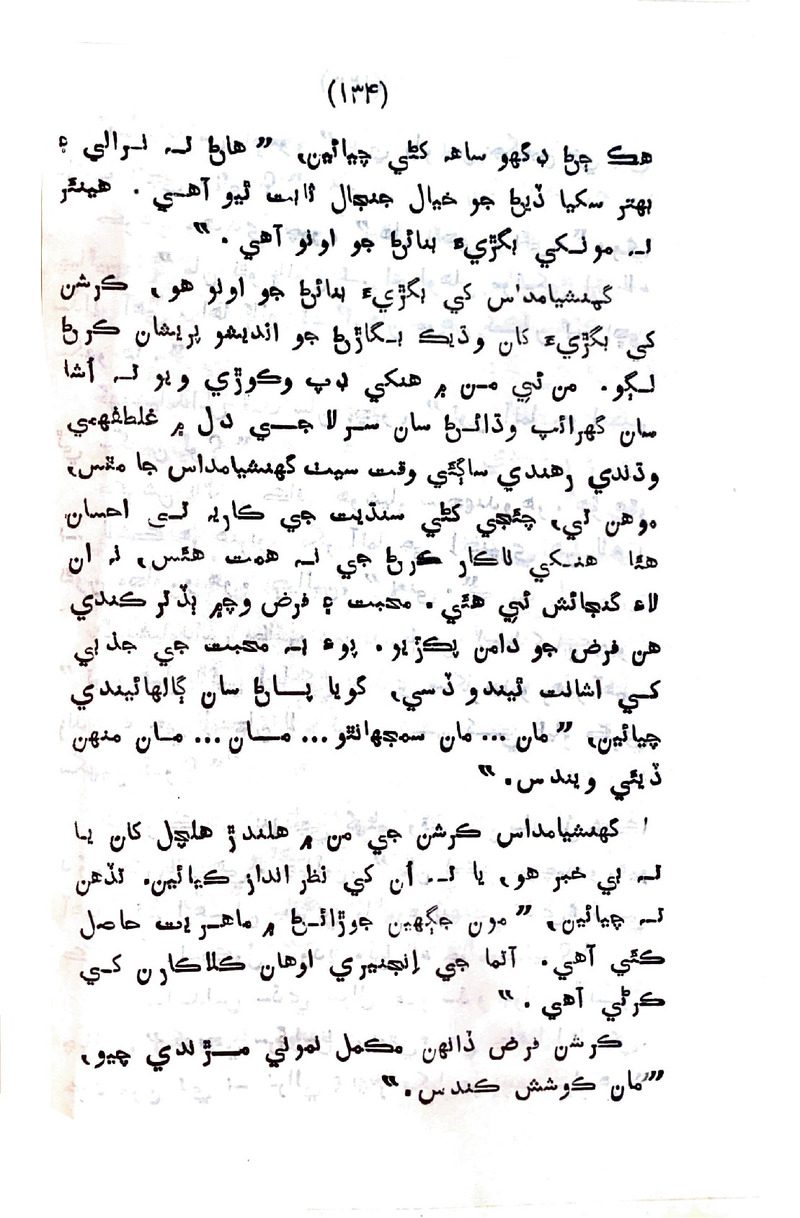 (۱۳۴)
هڪ ڄڻ ڊگهو ساهہ کڻي چيائين، ”هاڻ تہ نرالي ۽
بهتر سکيا ڏيڻ جو خيال جنجال ثابت ٿيو آهي. هينئر
تہ مونکي بگڙيءَ بنائڻ جو اونو آهي.“
گهنشيامداس کي بگڙيءَ بنائڻ جو اونو هو، ڪرشن
کي بگڙيءَ کان وڌيڪ بگاڙڻ جو انديشو پريشان ڪرڻ
لڳو. من ئي من ۾ هنکي ڊپ وڪوڙي ويو تہ آشا
سان گهرائپ وڌائڻ سان سرلا جي دل ۾ غلطفهمي
وڌندي رهندي ساڳئي وقت سيٺ گهنشيامداس جا مٿس،
موهن تي، چئجي کڻي سنڌيت جي ڪاريہ تي احسان
هئا هنکي ناڪار ڪرڻ جي نہ همت هئس، نہ ان
لاءِ گنجائش ئي هئي. محبت ۽ فرض وچ۾ ٻڏتر ڪندي
هن فرض جو دامن پڪڙيو. پوءِ بہ محبت جي جذبي
کي اشانت ٿيندو ڏسي، گويا پاڻ سان ڳالهائيندي
چيائين، ”مان ... مان سمجهانٿو ... مان ... مان منهن
ڏيئي ويندس.“
گهنشيامداس ڪرشن جي من ۾ هلندڙ هلچل کان يا
تہ بي خبر هو، يا تہ اُن کي نظر انداز ڪيائين. تڏهن
تہ چيائين، ”مون جڳهين جوڙائڻ ۾ ماهريت حاصل
ڪئي آهي. آتما جي اِنجنيري اوهان ڪلاڪارن کي
ڪرڻي آهي.“
ڪرشن فرض ڏانهن مڪمل نموني مڙندي چيو،
”مان ڪوشش ڪندس.“